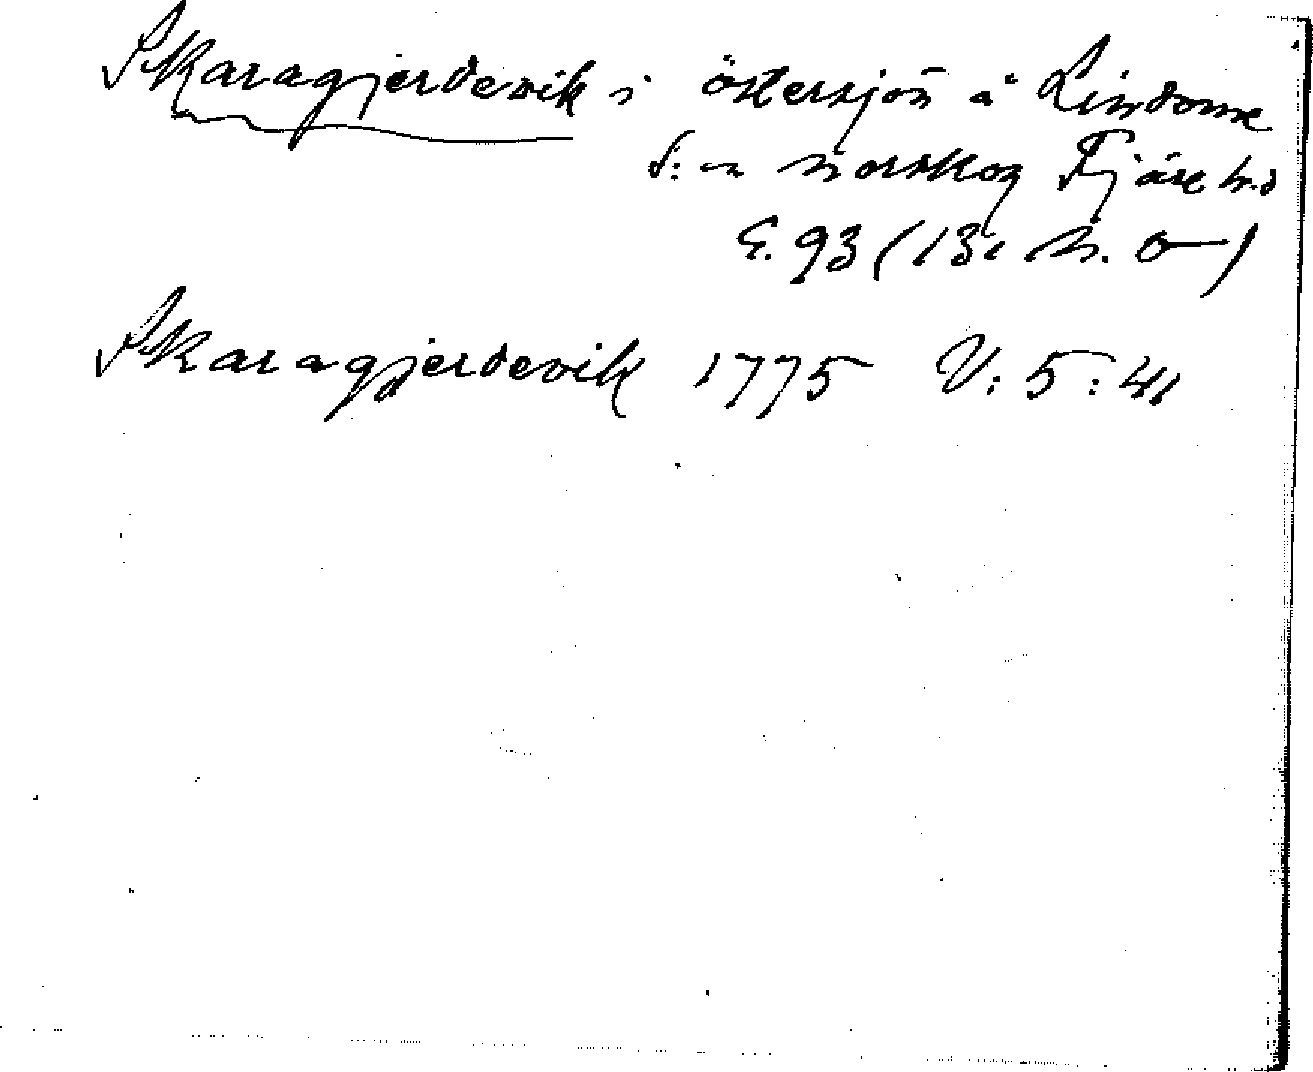 Skaragjerdevik i Östersjön å Lindome
S:n norskog Fjäre hd
E. 93 (13:
Skaragjerdevik 1775 V: 5: 41